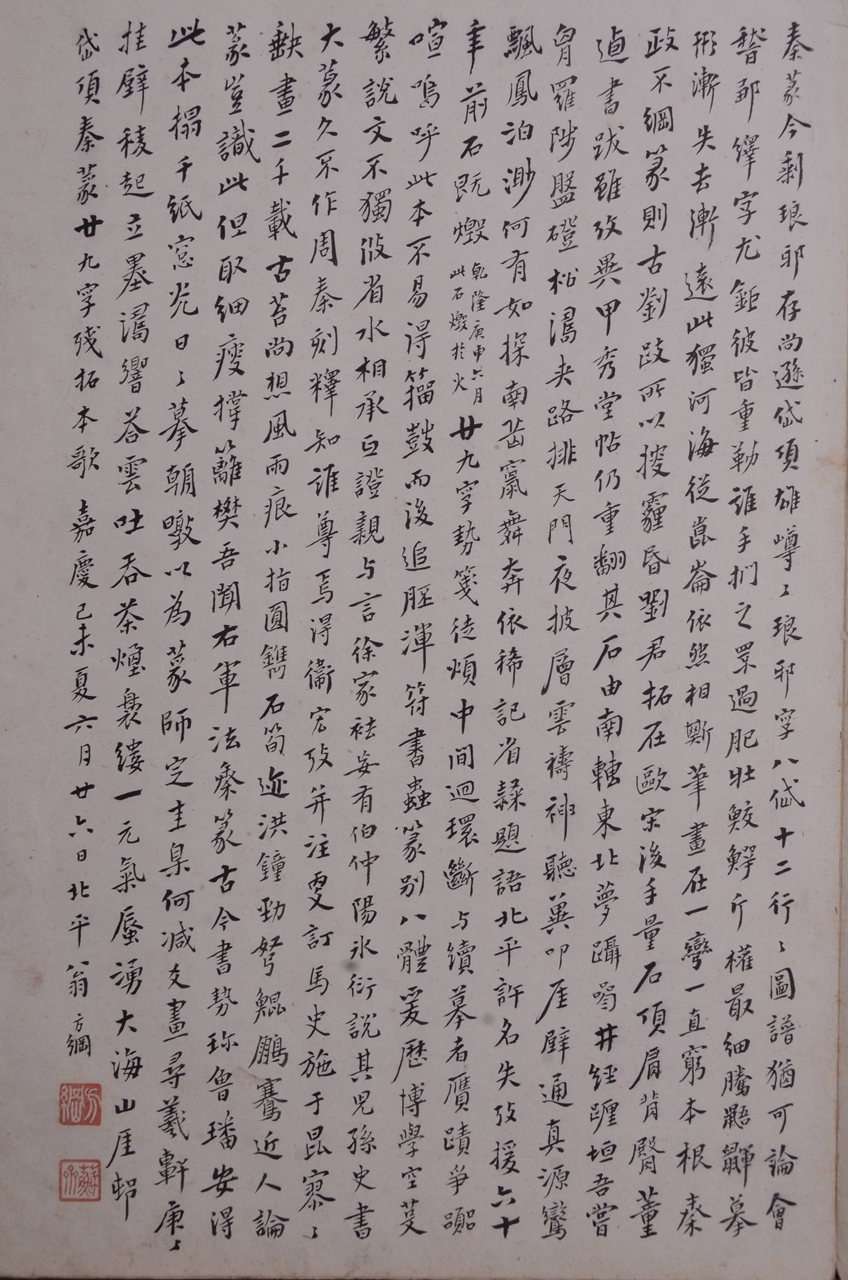 秦篆今剩琅邪存尚遜岱頂雄嶟〻琅邪字八岱十二行〻圖譜猶可論會
稽鄒繹字尤鉅彼皆重勒誰手捫之罘過肥壯鮫鰐斤權最細騰鼯鼲摹
形漸失去漸遠此獨河海從崑崙依然相斯筆畫在一彎一直窮本根秦
政不綱篆則古劉跂所以披霾昏劉君拓在歐宋後手量石頂肩背臀董
逌書跋雖攷異甲秀堂帖仍重翻其石由南轉東北夢躡蜀井經躔垣吾嘗
胷羅陟盤磴松濤夾路排天門夜披層雲禱神聽冀叩厓壁通真源鸞
飄鳳泊渺何有如探南嵒竄舞奔依稀記省隸題語北平許名失攷援六十
年前石既燬乾隆庚申六月此石燬於火廿九字勢箋徒煩中間迴環斷与續摹者贋蹟爭
喧嗚呼此本不易得籀鼓而後追胚渾符書蟲篆別八體爰歷博學空蔓
繁說文不獨攸省水相承正證親与言徐家袪妄有伯仲陽冰衍說其兒孫史書
大篆久不作周秦刻釋知誰尊焉得衞宏攷并注更訂馬史施于昆寥〻
缺畫二千載古苔尚想風雨痕小指圓鐫石筍迹洪鐘勁弩鯤鵬騫近人論
篆豈識此但取細瘦撑籬樊吾聞右軍法秦篆古今書勢珎魯璠安得
此本搨千紙窓光日〻摹朝暾以為篆師定圭臬何減爻畫尋羲軒庚〻
挂壁稜起立墨濤響荅雲吐吞茶煙裊縷一元氣蜃湧大海山厓邨
岱頂秦篆廿九字殘拓本歌 嘉慶己未夏六月廿六日北平翁方綱